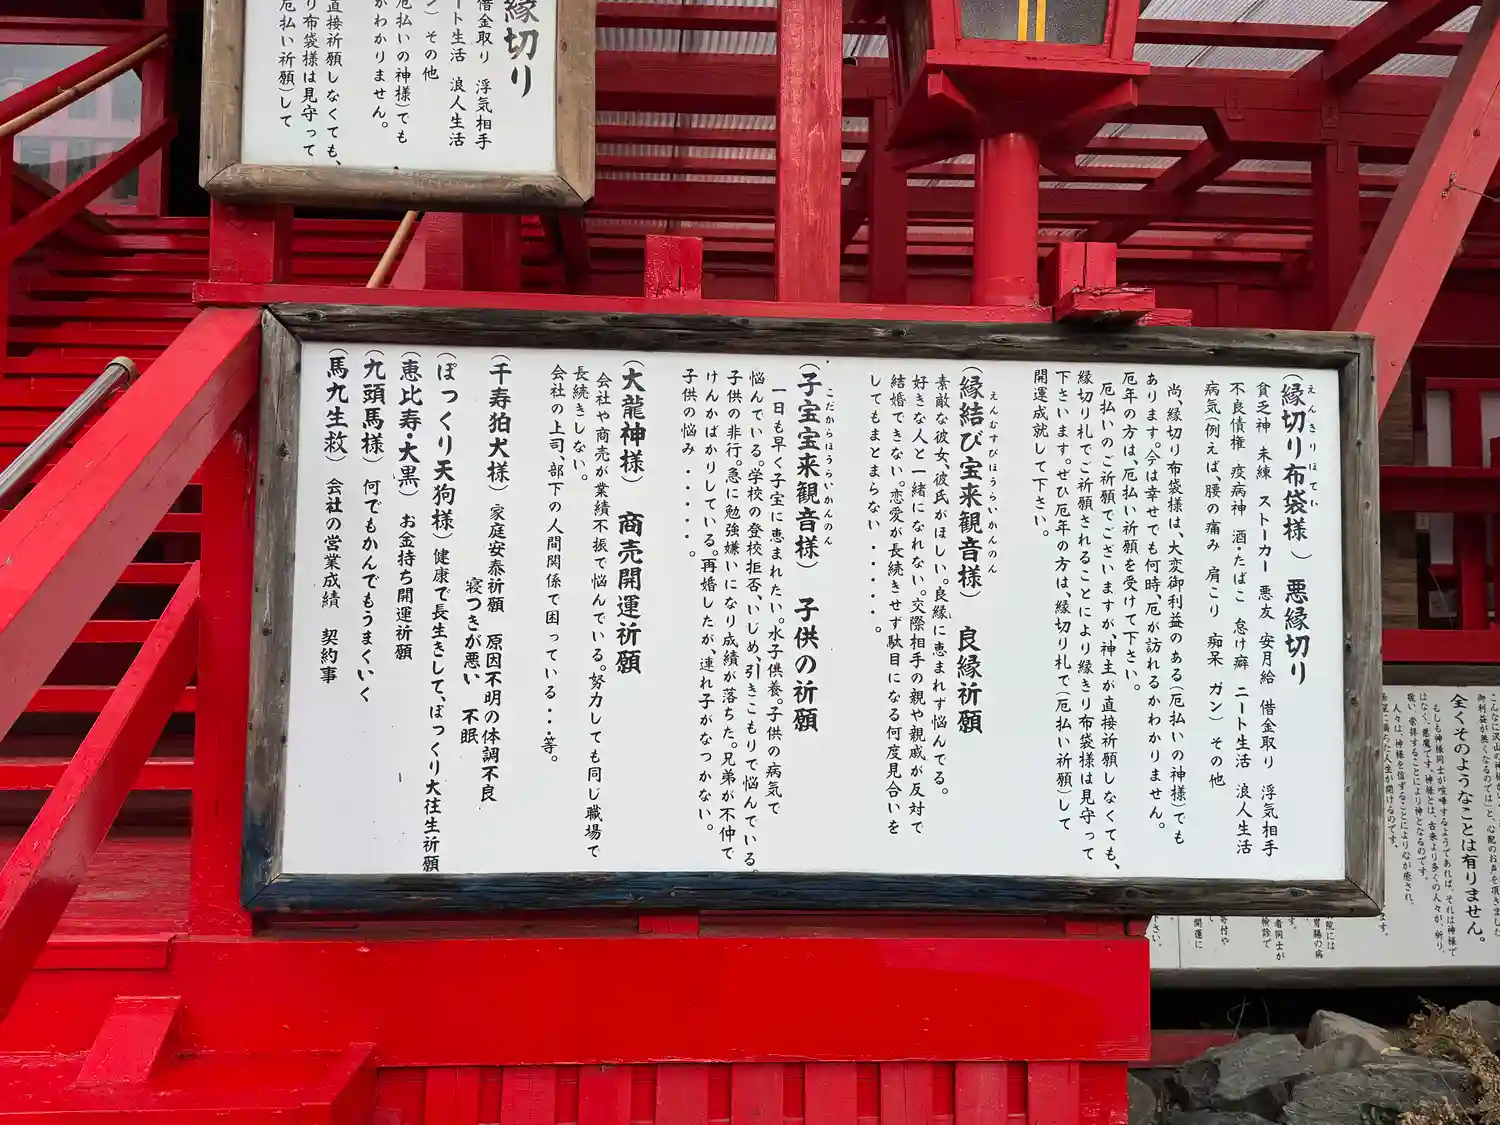 縁切り
借金取り 浮気相手
ニート生活 浪人生活
ガン）その他
厄払いの神様）でも
かわかりません。
直接祈願しなくても、
り布袋様は見守って
厄払い祈願）して
えんきりほてい
（縁切り布袋様） 悪縁切り
貧乏神 未練 ストーカー 悪友 安月給 借金取り 浮気相手
不良債権 疫病神 酒・たばこ 怠け癖 ニート生活 浪人生活
病気例えば、腰の痛み 肩こり 痴呆 ガン）その他
尚、縁切り布袋様は、大変御利益のある（厄払いの神様）でも
あります。今は幸せでも何時、厄が訪れるかわかりません。
厄年の方は、厄払い祈願を受けて下さい。
厄払いのご祈願でございますが、神主が直接祈願しなくても、
縁切り札でご祈願されることにより縁きり布袋様は見守って
下さいます。ぜひ厄年の方は、縁切り札で（厄払い祈願）して
開運成就して下さい。
えんむすびほうらいかんのん
（縁結び宝来観音様） 良縁祈願
素敵な彼女、彼氏がほしい。良縁に恵まれず悩んでる。
好きな人と一緒になれない。交際相手の親や親戚が反対で
結婚できない。恋愛が長続きせず駄目になる何度見合いを
してもまとまらない・・・・・。
こだからほうらいかんのん
（子宝宝来観音様） 子供の祈願
一日も早く子宝に恵まれたい。水子供養。子供の病気で
悩んでいる。学校の登校拒否、いじめ、引きこもりで悩んでいる。
子供の非行。急に勉強嫌いになり成績が落ちた。兄弟が不仲で
けんかばかりしている。再婚したが、連れ子がなつかない。
子供の悩み・・・・・。
（大龍神様） 商売開運祈願
会社や商売が業績不振で悩んでいる。努力しても同じ職場で
長続きしない。
会社の上司、部下の人間関係で困っている・・・等。
（千寿狛犬様）家庭安泰祈願 原因不明の体調不良
寝つきが悪い 不眠
（ぽっくり天狗様）健康で長生きして、ぽっくり大往生祈願
（恵比寿・大黒） お金持ち開運祈願
（九頭馬様）何でもかんでもうまくいく
（馬九生救）会社の営業成績 契約事
こんなに沢山の神様
御利益が無くなるのでは」と、心配のお声を頂きました
全くそのようなことは有りません。
もしも神様同士が喧嘩するようであれば、それは神様で
はなく、悪魔です。神様とは、古来より多くの人々が、祈り、
敬い、崇拝することにより神となるのです。
人々は、神様を信ずることにより心が癒され、
人生が開けるのです。